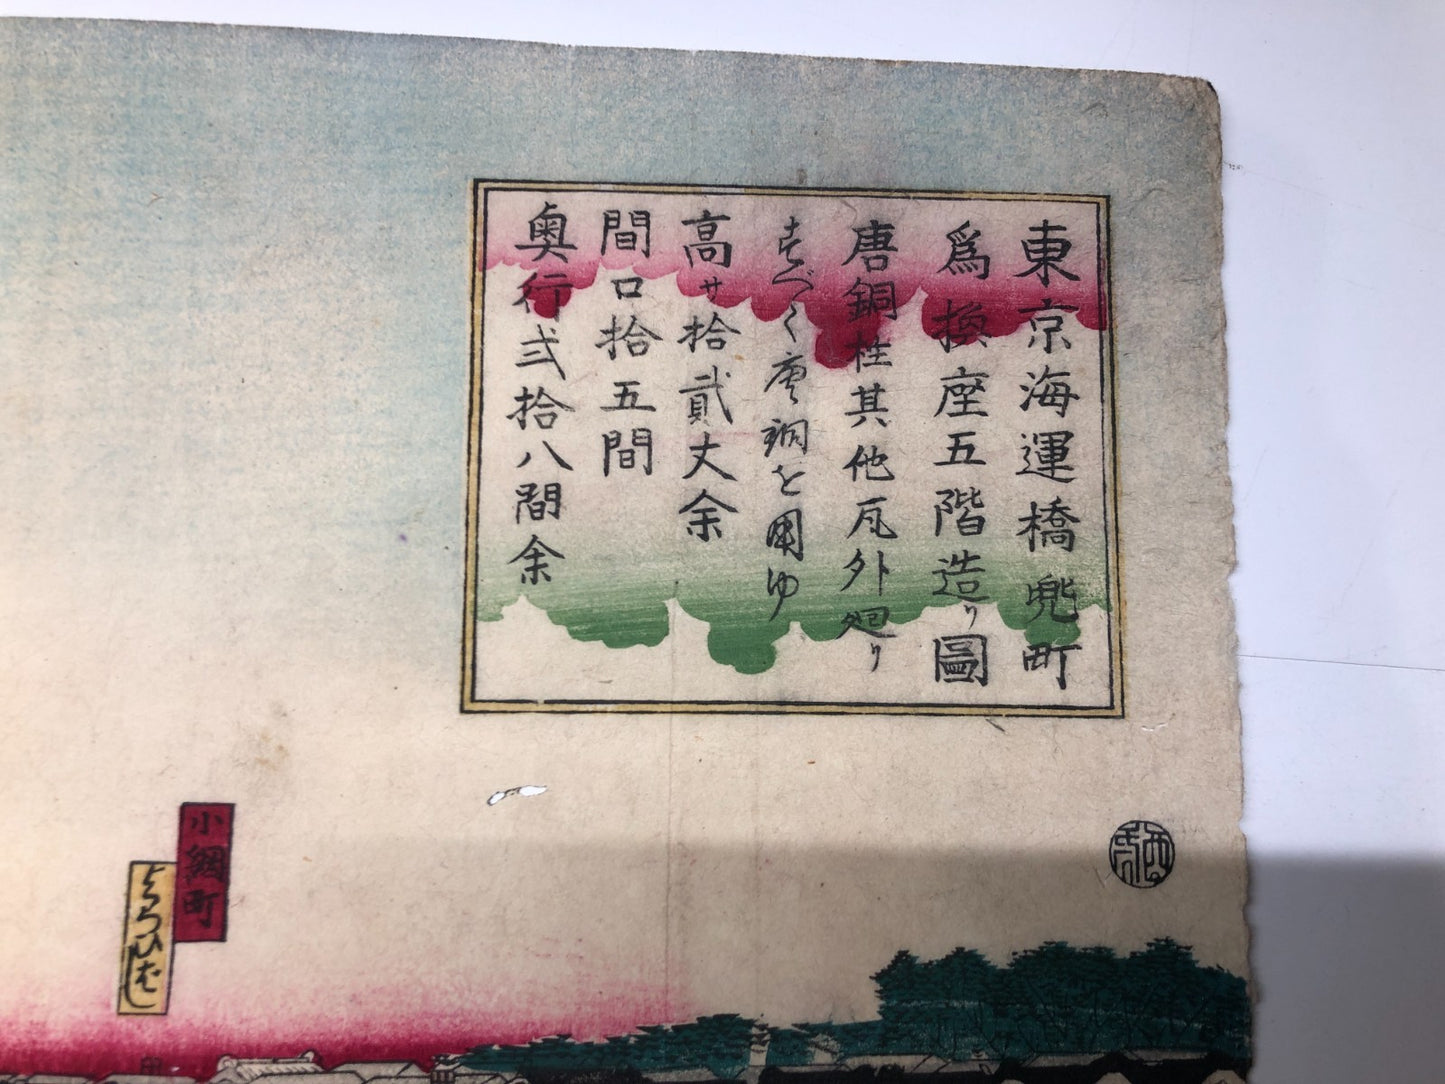 東京海運橋兜町
為換座五階造リ圖
唐銅柱其他瓦外廻リ
すべて唐銅を用ゆ
高サ拾貳丈余
間口拾五間
奥行弍拾八間余
小網町
よろひばし